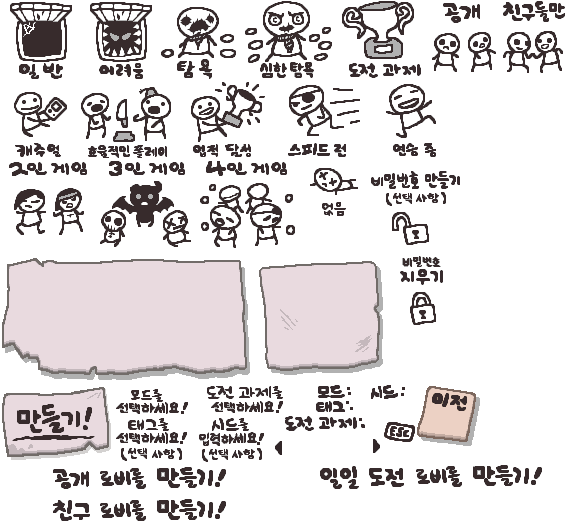 공개 친구들만
일반 어려움 탐욕 심한 탐욕 도전 과제
캐주얼 효율적인 플레이 업적 달성 스피드 런 연습 중
2인 게임 3인 게임 4인 게임
없음
비밀번호 만들기
(선택 사항)
비밀번호
지우기
만들기!
모드를
선택하세요!
태그를
선택하세요!
(선택 사항)
도전 과제를
선택하세요!
시드를
입력하세요!
(선택 사항)
모드: 시드:
태그:
도전 과제:
이전
ESC
공개 로비를 만들기!
일일 도전 로비를 만들기!
친구 로비를 만들기!